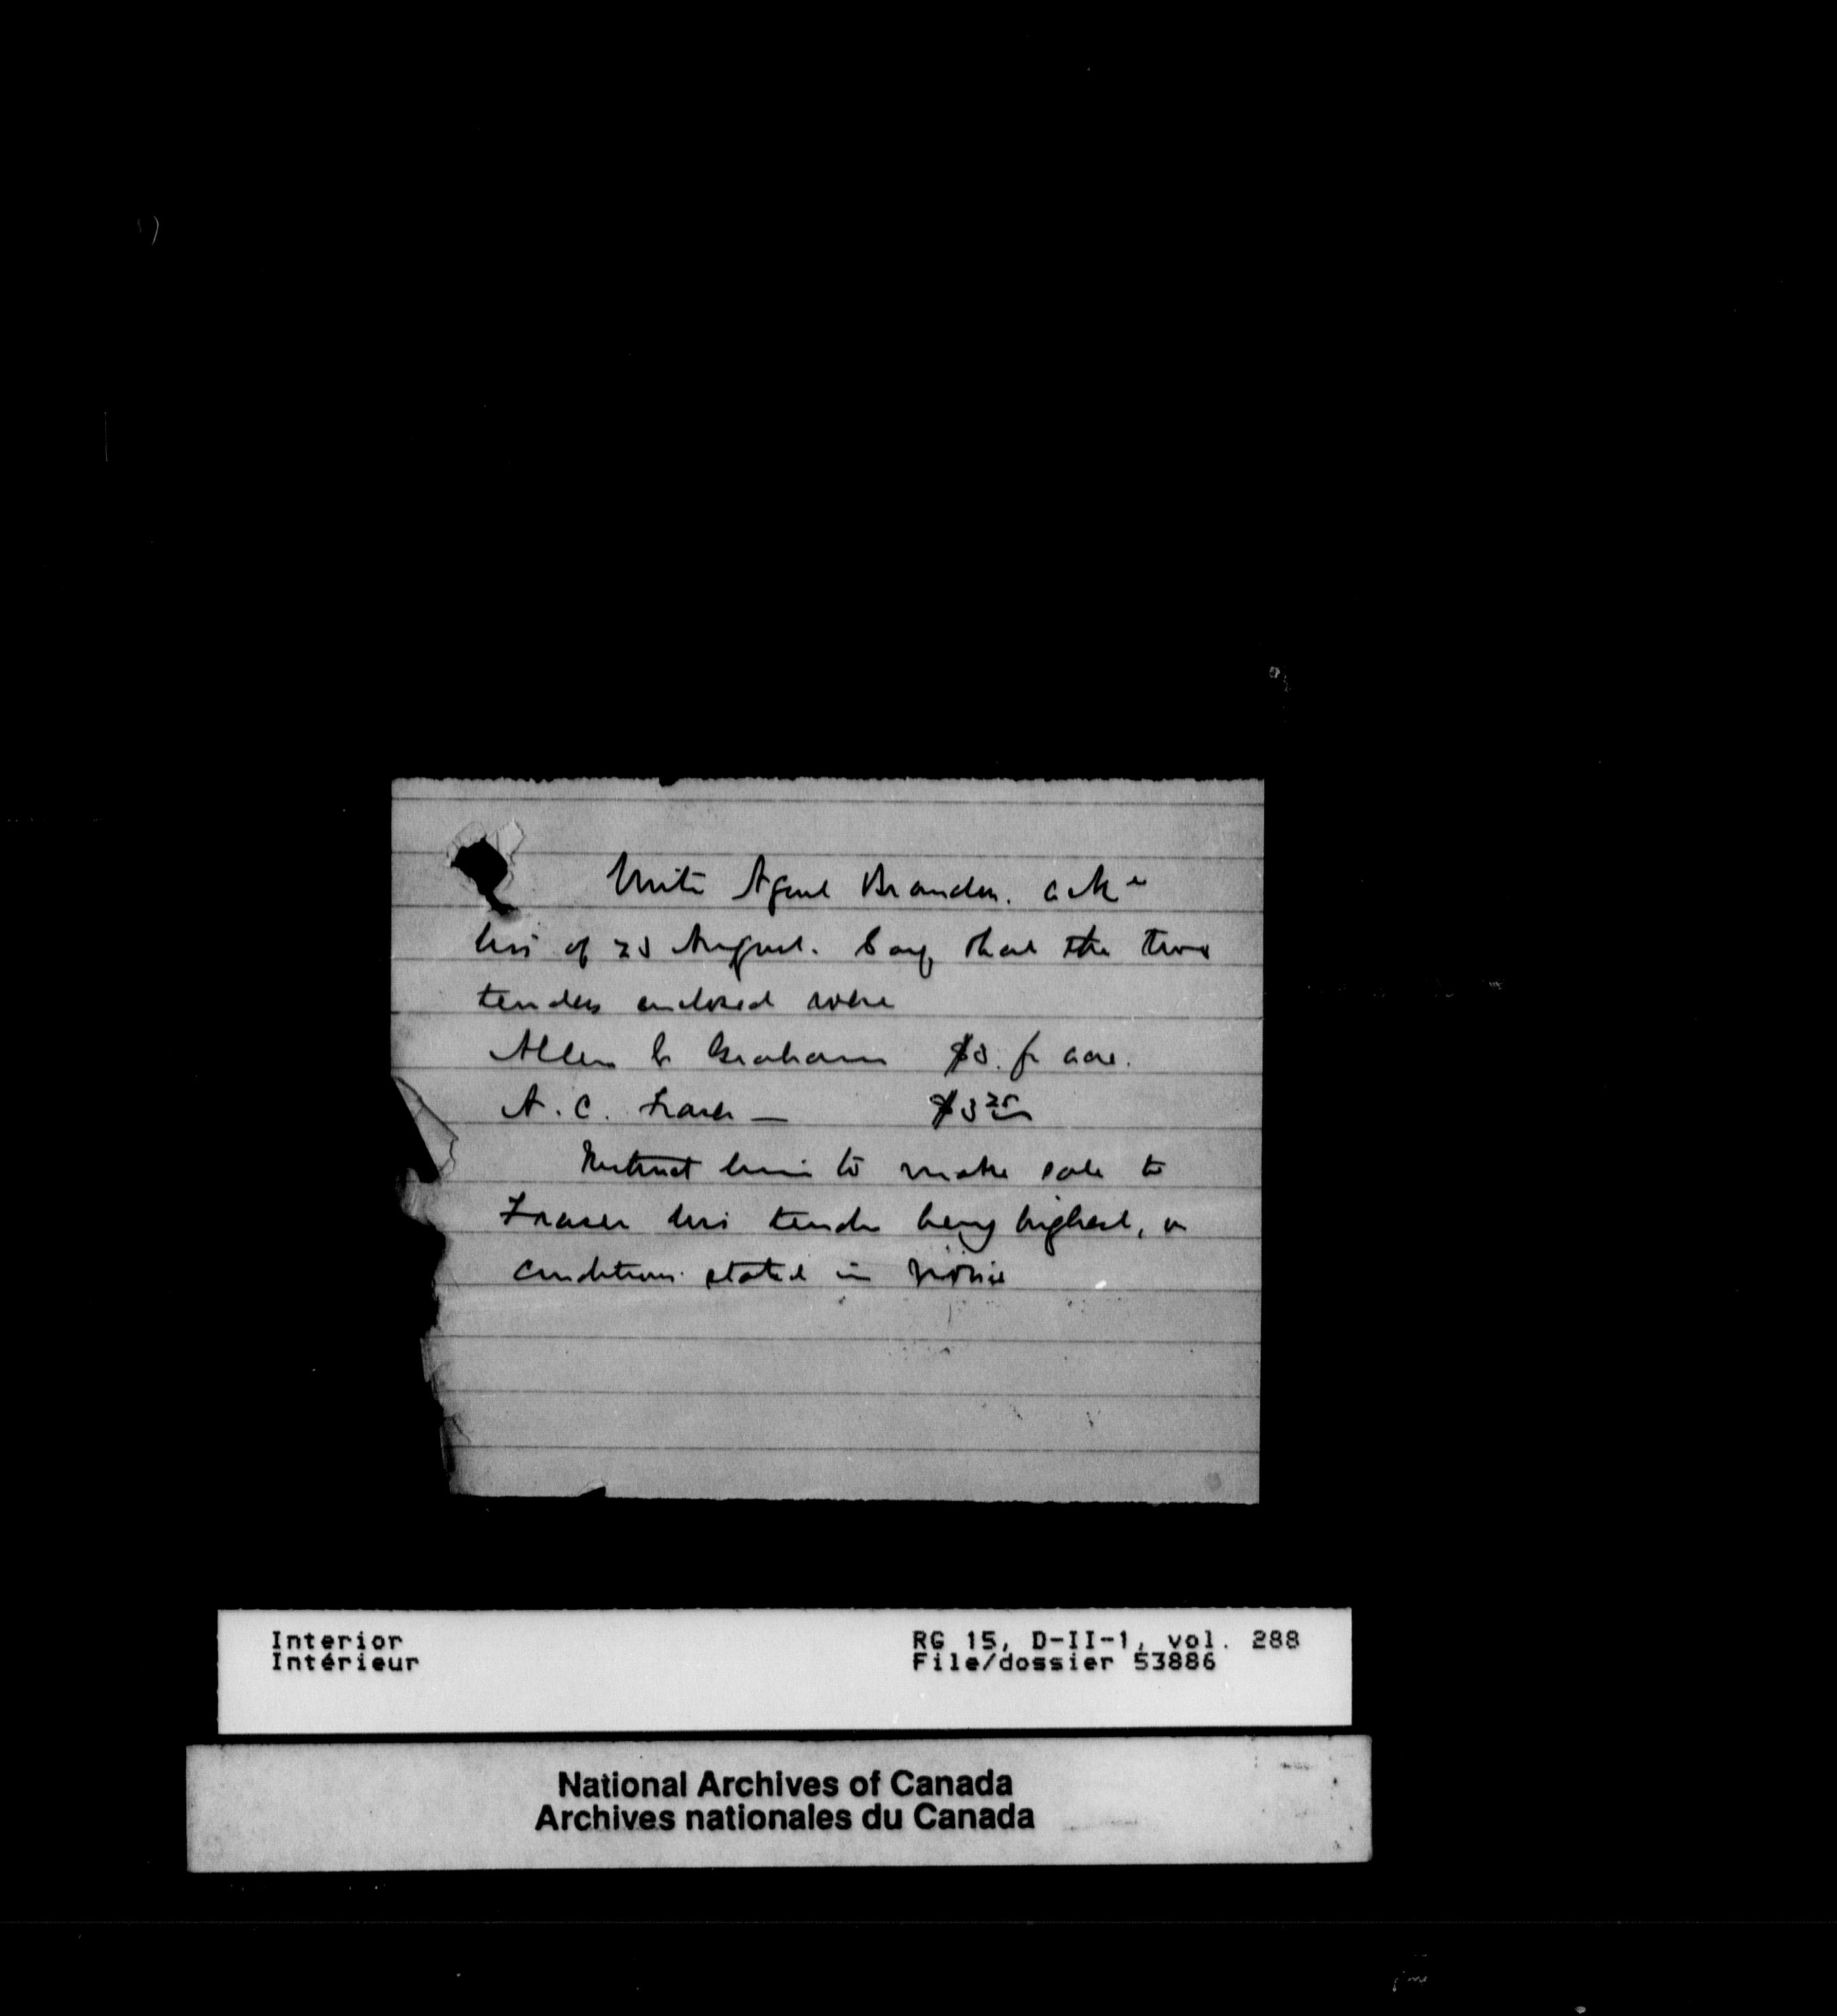 Write Agent Brandon. ack^e
his of 23 August. Say that the two
tenders enclosed were
Allen Graham $3. pr acre.
A. C. Fraser — $3 25
Instruct him to make sale to
Fraser his tender being highest, on
conditions stated in notice
Interior RG 15, D-II-1, vol. 288
Intérieur File/dossier 53886
National Archives of Canada
Archives nationales du Canada